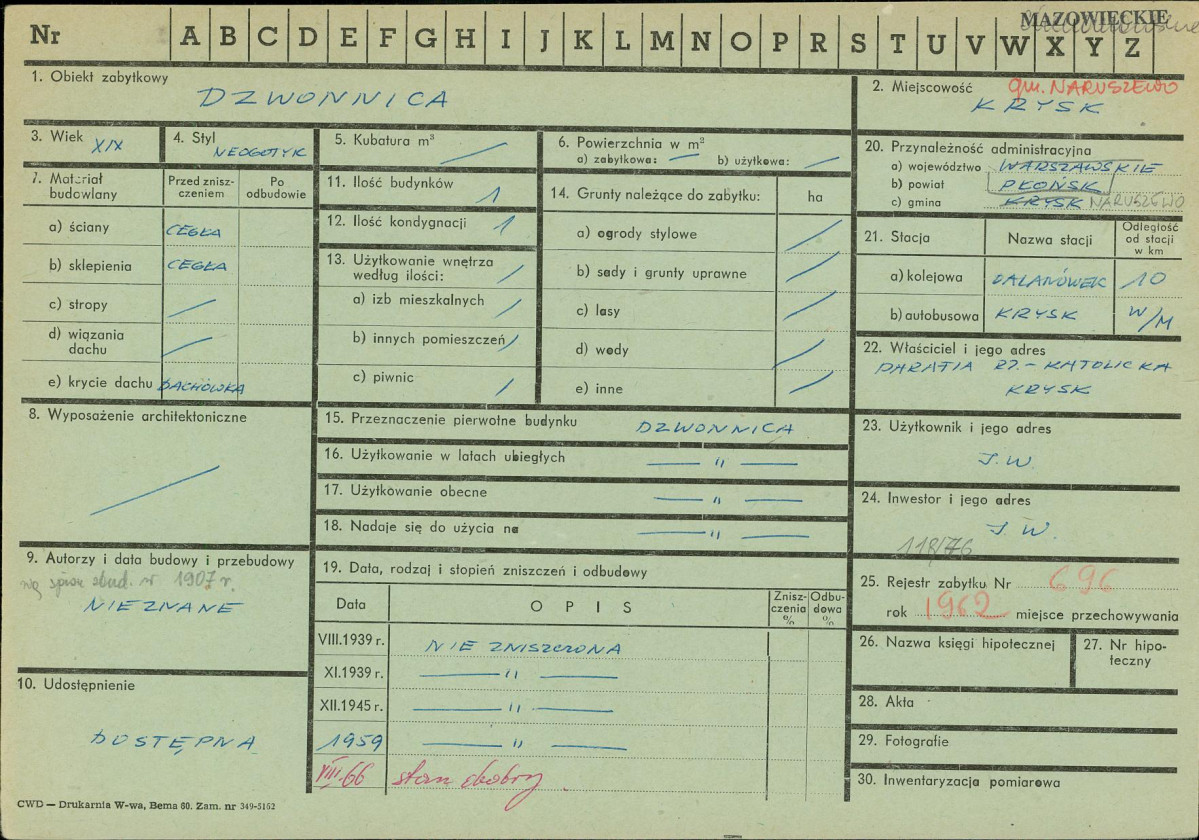 Nr A B C D E F G H I J K L M N O P R S T U V W X Y Z
MAZOWIECKIE
1. Obiekt zabytkowy
DZWONNICA
2. Miejscowość gm. NARUSZEWO
KRYSK
3. Wiek XIX
4. Styl NEOGOTYK
5. Kubatura m³
6. Powierzchnia w m²
a) zabytkowa: — b) użytkowa:
20. Przynależność administracyjna
a) województwo WARSZAWSKIE
b) powiat PŁOŃSK
c) gmina KRYSK NARUSZEWO
7. Materiał budowlany
Przed znisz-
czeniem
Po
odbudowie
a) ściany CEGŁA
b) sklepienia CEGŁA
c) stropy
d) wiązania
dachu
e) krycie dachu DACHÓWKA
11. Ilość budynków 1
12. Ilość kondygnacji 1
13. Użytkowanie wnętrza
według ilości:
a) izb mieszkalnych
b) innych pomieszczeń
c) piwnic
14. Grunty należące do zabytku: ha
a) ogrody stylowe
b) sady i grunty uprawne
c) lasy
d) wody
e) inne
21. Stacja Nazwa stacji
Odległość
od stacji
w km
a) kolejowa DALANÓWEK 10
b) autobusowa KRYSK W/M
22. Właściciel i jego adres
PARAFIA RZ.-KATOLICKA
KRYSK
8. Wyposażenie architektoniczne
15. Przeznaczenie pierwotne budynku DZWONNICA
16. Użytkowanie w latach ubiegłych — " —
17. Użytkowanie obecne — " —
18. Nadaje się do użycia na — " —
23. Użytkownik i jego adres
J.W.
24. Inwestor i jego adres
J.W.
118/76
9. Autorzy i data budowy i przebudowy
wg spisu zbud. w 1907 r.
NIEZNANE
19. Data, rodzaj i stopień zniszczeń i odbudowy
Data OPIS
Znisz-
czenia
%
Odbu-
dowa
%
VIII.1939 r. NIE ZNISZCZONA
XI.1939 r. — " —
XII.1945 r. — " —
1959 — " —
VIII.66 stan dobry
25. Rejestr zabytku Nr 696
rok 1962 miejsce przechowywania
26. Nazwa księgi hipotecznej
27. Nr hipo-
teczny
10. Udostępnienie
DOSTĘPNA
28. Akta
29. Fotografie
30. Inwentaryzacja pomiarowa
CWD — Drukarnia W-wa, Bema 60. Zam. nr 349-5162